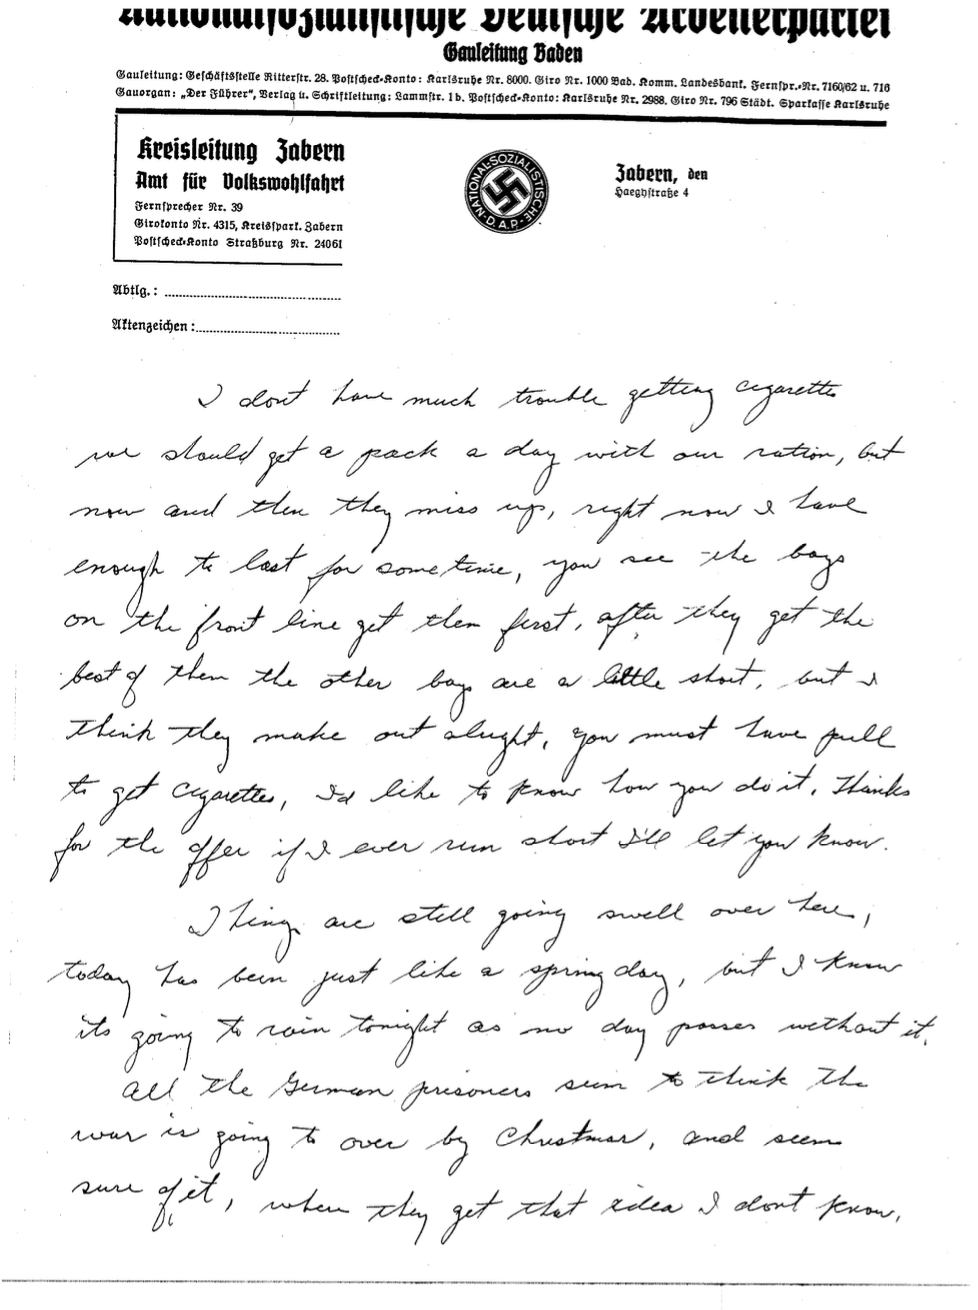 Nationalsozialistische Deutsche Arbeiterpartei
Gauleitung Baden
Gauleitung: Geschäftsstelle Ritterstr. 28. Postscheck-Konto: Karlsruhe Nr. 8000. Giro Nr. 1000 Bad. Komm. Landesbank. Fernspr.-Nr. 7160/62 u. 716
Gauorgan: „Der Führer“, Verlag u. Schriftleitung: Lammstr. 1 b. Postscheck-Konto: Karlsruhe Nr. 2988. Giro Nr. 796 Städt. Sparkasse Karlsruhe
Kreisleitung Zabern
Amt für Volkswohlfahrt
Fernsprecher Nr. 39
Girokonto Nr. 4315, Kreisspark. Zabern
Postscheck-Konto Straßburg Nr. 24061
NATIONAL-SOZIALISTISCHE D.A.P.
Zabern, den
Haeghstraße 4
Abtlg.:
Aktenzeichen:
I dont have much trouble getting cigarettes
we should get a pack a day with our ration, but
now and then they miss up, right now I have
enough to last for sometime, you see the boys
on the front line get them first, after they get the
best of them the other boys are a little short, but I
think they make out alright, you must have pull
to get cigarettes, I'd like to know how you do it. Thanks
for the offer if I ever run short I'll let you know.
Things are still going swell over here,
today has been just like a spring day, but I know
its going to rain tonight as no day passes without it.
All the German prisoners seem to think the
war is going to over by Christmas, and seem
sure of it, where they get that idea I dont know.